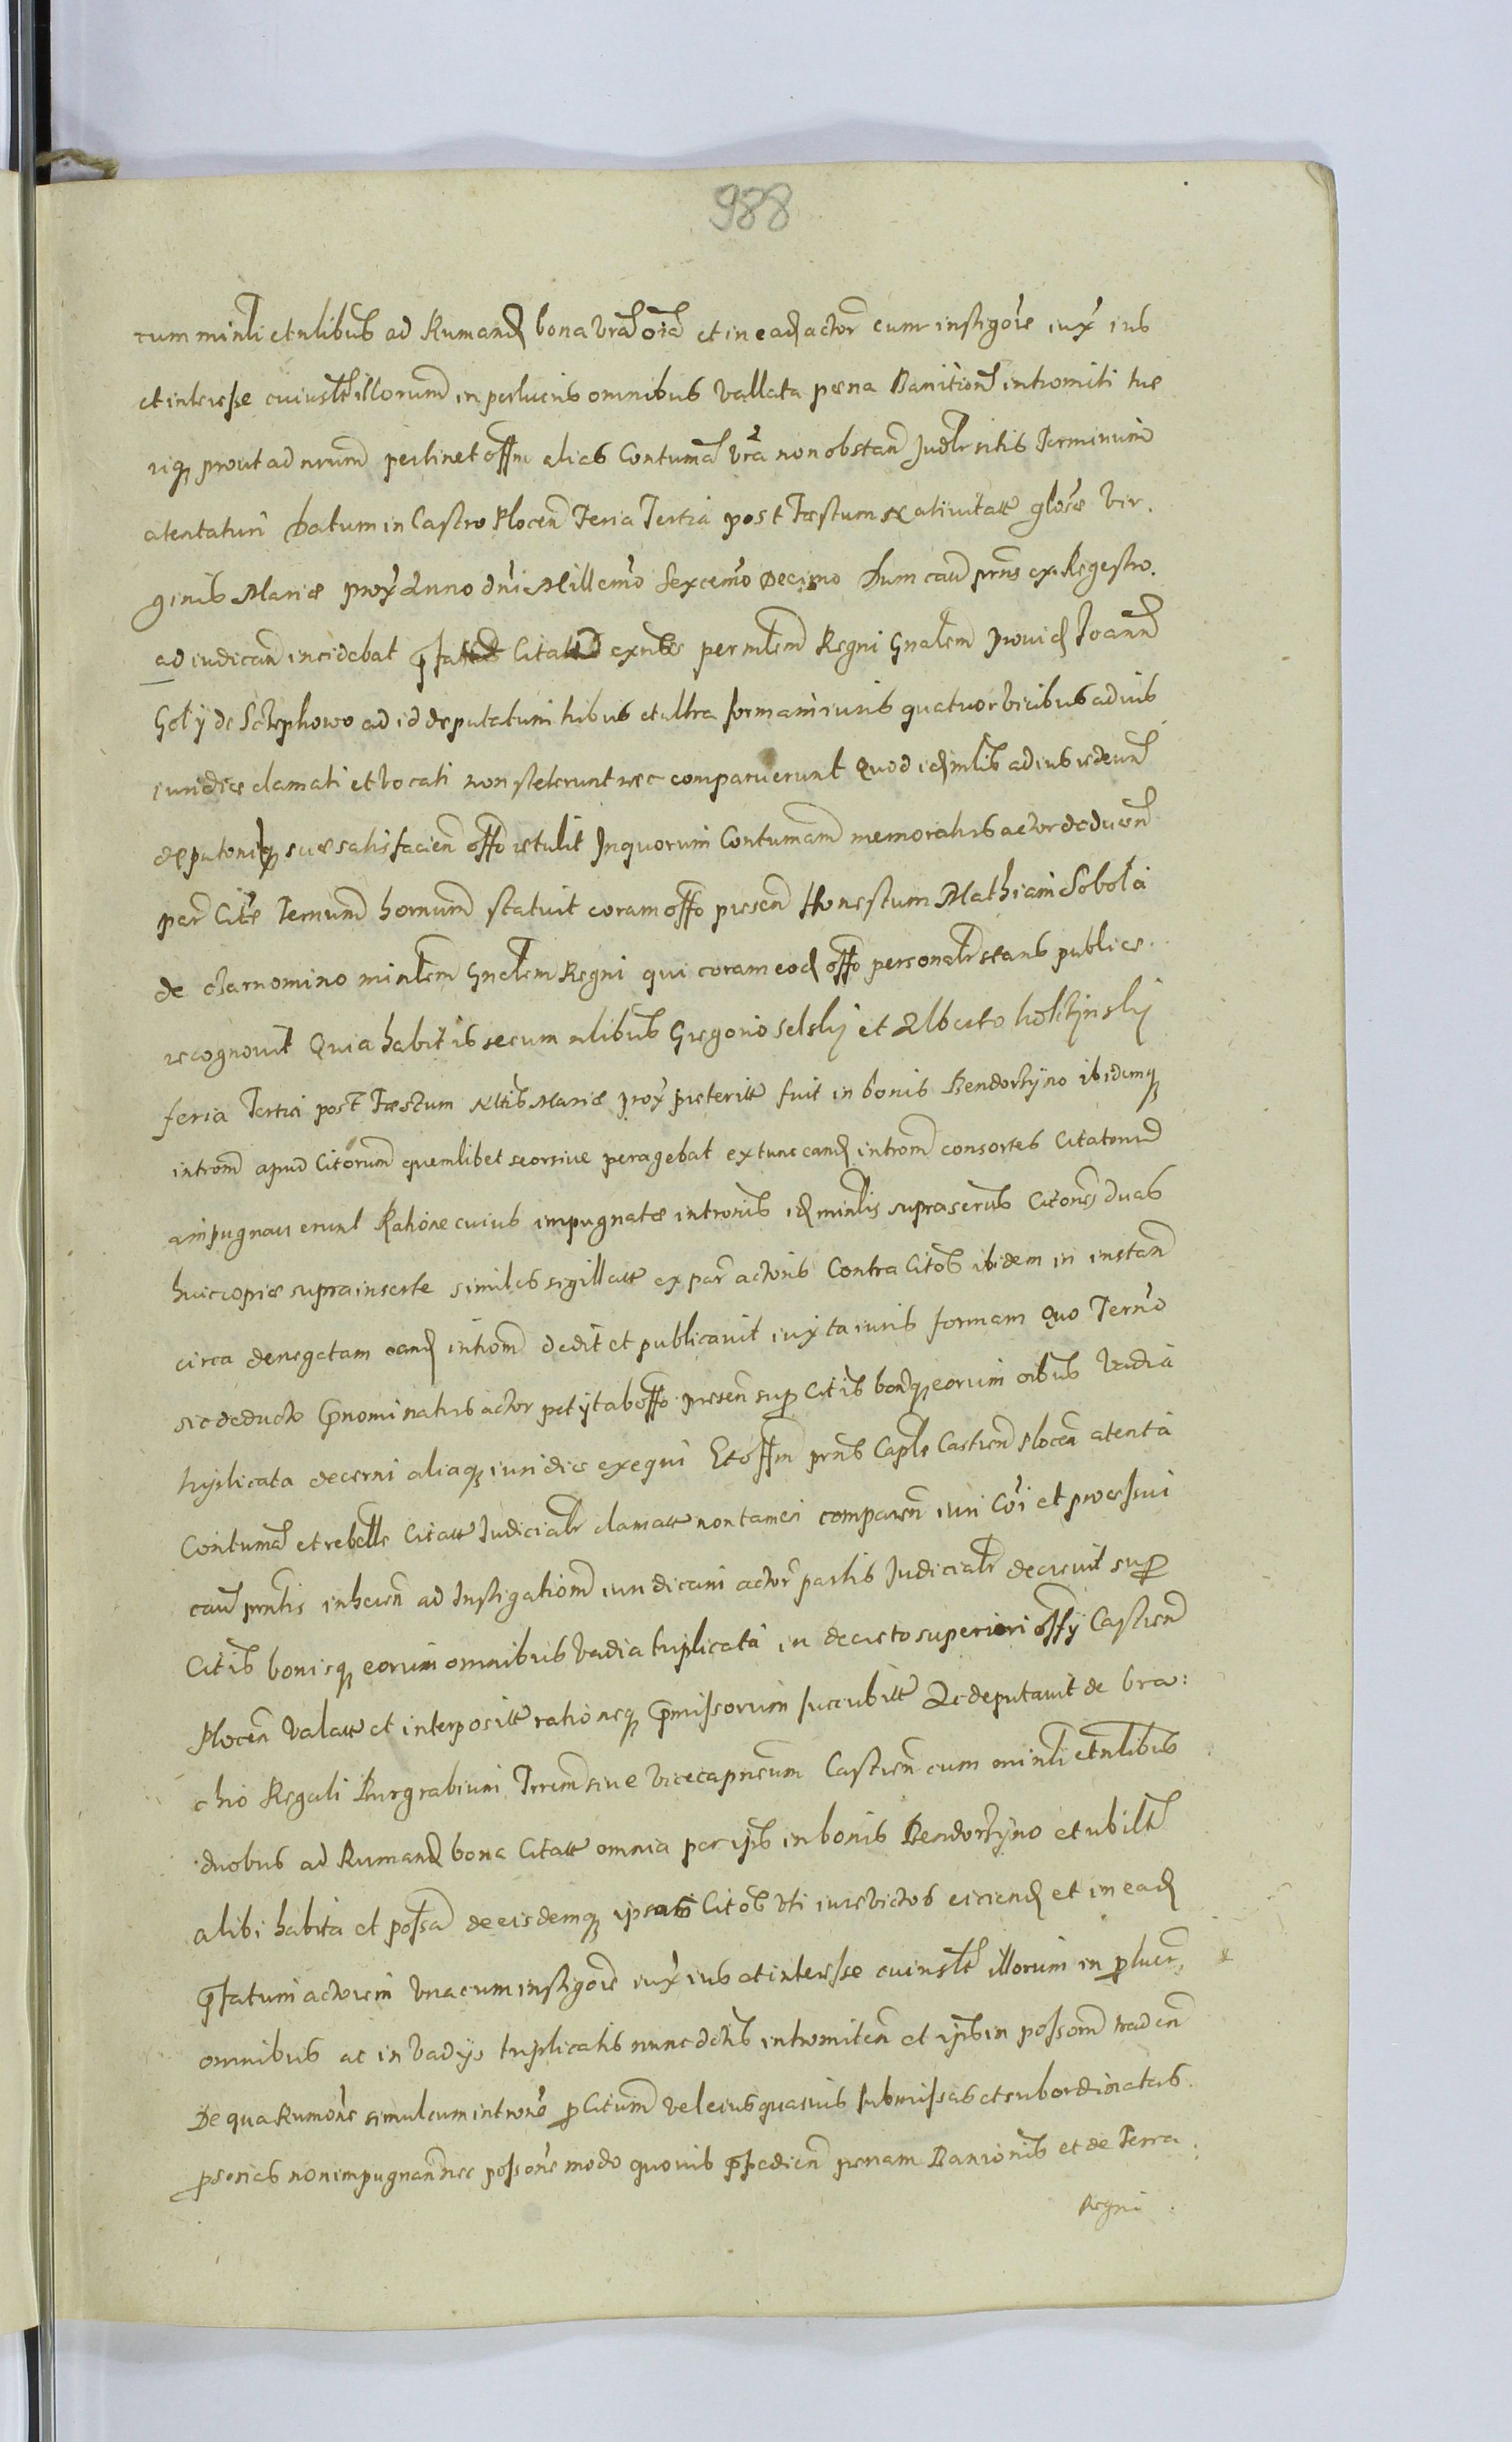 988
cum minli et nlibus ad Rumand bona vrā oīa et in eadē actor cum instigore iux ius
et interesse cuiuslt illorum in perlucris omnibus vallata pœna Banitionē intromiti tuē
rigz prout ad nrum pertinet offm alias Contumā vrā non obstan Judlr sitis Terminum
atentaturi Datum in Castro Plocen Feria Tertia post Fæstum Natiuitatt glosæ Vir.
ginis Mariæ prox Anno dni Millemo Sexcemo Decimo Dum caū prns ex Regestro.
ad iudican incidebat pfatus Citatus exules per mlem Regni Gnalem prouid Joann
Goły de Sczephowo ad id deputatum tribus et ultra formam iuris quatuor vicibus ad ius
iuridice clamati et vocati non steterunt nec comparuerunt Quod idē mlis ad ius redeun
deputonigz suæ satisfacien offo retulit In quorum Contumam memoratus actor deducen
par Citē Ternum hornum statuit coram offo presen Honestum Mathiam Sobota
de Czarnomino minlem Gnalem Regni qui coram eod offo personalr stans publice.
recognouit Quia habitis secum nlibus Gregorio Selski et Alberto holtzinski
feria Tertia post Fæstum Nltis Mariæ prox preteritt fuit in bonis Bendorzyno ibidemqz
introm apud Citorum quemlibet seorsiue peragebat ex tunc eand introm consortes Citatorum
impugnauerunt Ratione cuius impugnatæ intronis id minlis suprascrus Citones duas
huic copiæ suprainserte similes sigillatt ex par actoris Contra Citos ibidem in instan
circa denegatam eand introm dedit et publicauit iuxta iuris formam Quo Terno
sic deducto pnominatus actor petyt ab offo presen sup Citis bonqz eorum oibus Vadia
triplicata decerni aliaqz iuridice exequi Et offm prns Caple Castren Plocen atenta
Contumā et rebelle Citatt Judicialr clamatt non tamen comparen iuri Coi et processui
caū prntis inheren ad Instigationē iuridicam actor partis Judicialr decreuit sup
Citis bonisqz eorum omnibus Vadia triplicata in decreto superiori offy Castren
Plocen valatt et interpositt rationeqz pmissorum succubitt Ac deputauit de bra:
chio Regali Burgrabium Terrem siue Vicecapneum Castren cum minli et nlibus
duobus ad Rumand bona Citatt omnia per ipsos in bonis Bendorzyno et ubilt
alibi habita et possa de eisdemqz ipsos Citos vti iure victos eiciend et in ead
pfatum actorem vna cum instigore iux ius et interesse cuiuslt illorum in plucr
omnibus ac in Vadys triplicatis nunc dctis intromiten et ipsos in possom traden
De qua Rumone simul cum introne p Citum vel eius quasuis submissas et subordinatas
psonas non impugnan nec possone modo quouis pfedien penam Banionis et de Terra
Regni